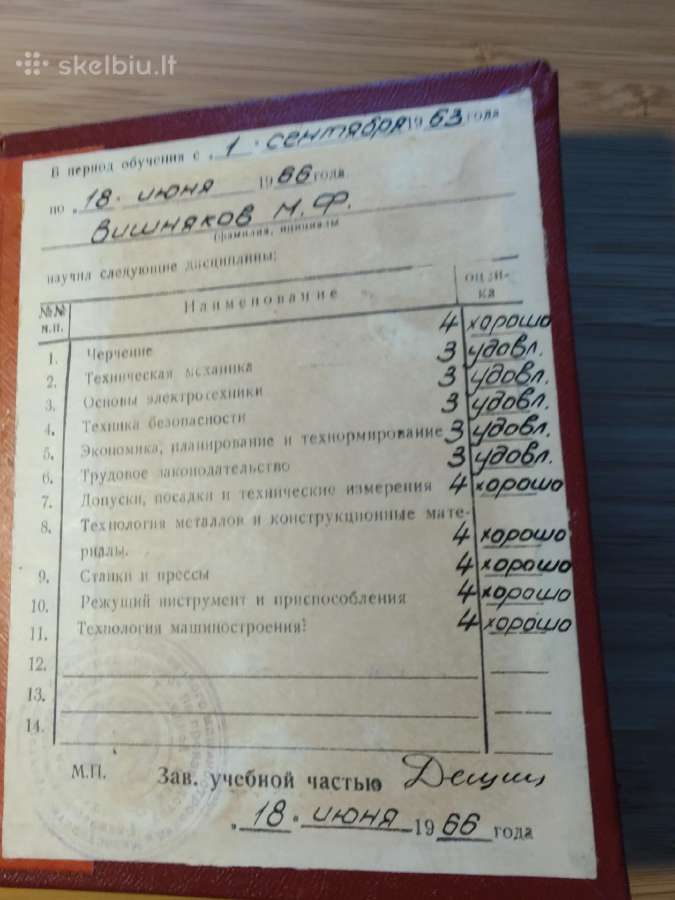 skelbiu.lt
В период обучения с „1 · сентября 1963 года
по „18. июня 1966 года.
Вишняков М.Ф.
(фамилия, инициалы
изучил следующие дисциплины:
№№ п.п. Наименование оцен- ка
1. Черчение 4 хорошо
2. Техническая механика 3 удовл.
3. Основы электротехники 3 удовл.
4. Техника безопасности 3 удовл.
5. Экономика, планирование и технормирование 3 удовл.
6. Трудовое законодательство 3 удовл.
7. Допуски, посадки и технические измерения 4 хорошо
8. Технология металлов и конструкционные мате-
риалы. 4 хорошо
9. Станки и прессы 4 хорошо
10. Режущий инструмент и приспособления 4 хорошо
11. Технология машиностроения 4 хорошо
12.
13.
14.
М.П. Зав. учебной частью
„18. июня 1966 года